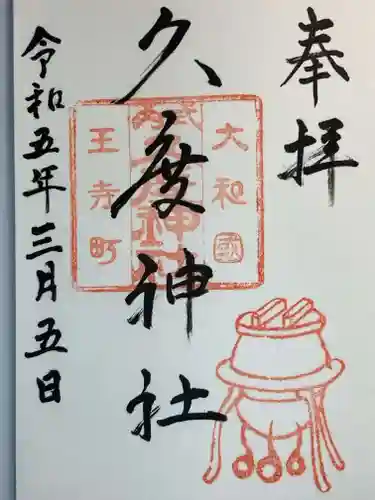 奉拝
久度神社
大和國
王寺町
令和五年三月五日